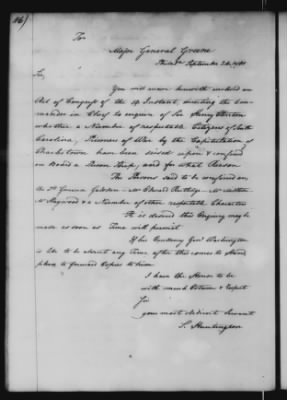 16)
To
Major General Greene
Philada September 24. 1780
Sir,
You will receive herewith enclosed an
Act of Congress of the 14 Instant, directing the Com-
mander in Chief to enquire of Sir Henry Clinton
whether a Number of respectable Citizens of South
Carolina, Prisoners of War by the Capitulation of
Charlestown have been seized upon & confined
on Board a Prison Ship, and for what Reason
The Persons said to be confined are
Lt Governor Gadsden - Mr Edward Rutledge
Mr Haywood & a Number of other respectable Characters
It is desired this Enquiry may be
made as soon as Time will permit
If his Excellency Genl Washington
is like to be absent any Time after this comes to Hand
please to forward Copies to him
I have the Honor to be
with much Esteem & Respect
Sir
your most obedient Servant
S. Huntington